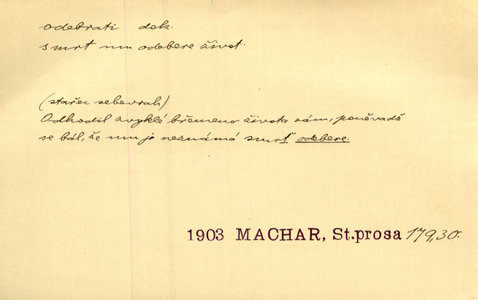 odebrati dok
smrt mu odebere život.
(stařec sebevrah)
Odhodil zvyklé břemeno života sám, poněvadž
se bál, že mu je neznámá smrt odebere.
1903 MACHAR, St.prosa 179,30.